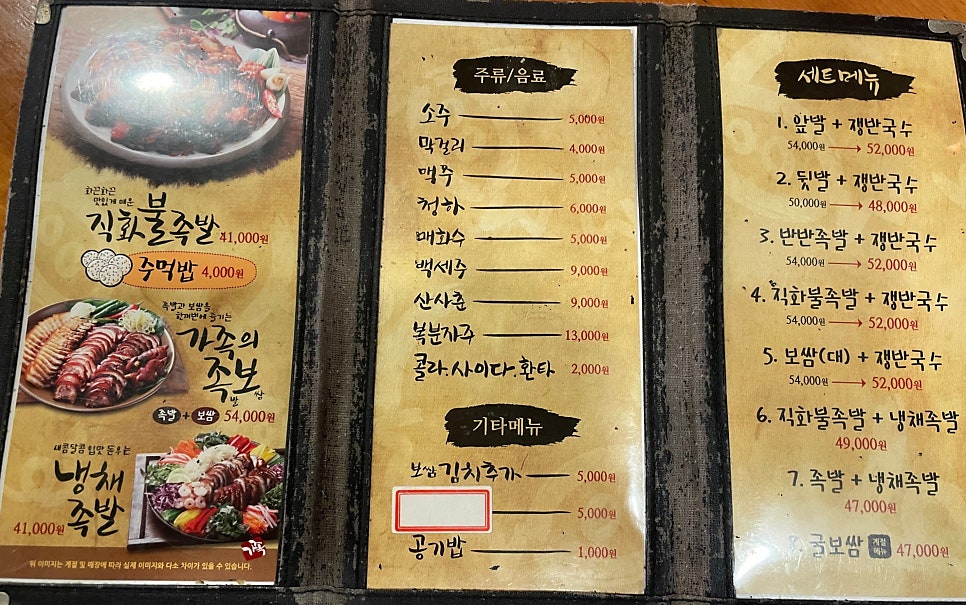 화끈화끈
맛있게 매운
직화불족발 41,000원
주먹밥 4,000원
족발과 보쌈을
한꺼번에 즐기는
가족의
족발 보쌈
족발 + 보쌈 54,000원
새콤달콤 입맛 돋우는
냉채
족발
41,000원
가족
위 이미지는 계절 및 매장에 따라 실제 이미지와 다소 차이가 있을 수 있습니다.
주류/음료
소주 5,000원
막걸리 4,000원
맥주 5,000원
청하 6,000원
매화수 5,000원
백세주 9,000원
산사춘 9,000원
복분자주 13,000원
콜라.사이다.환타 2,000원
기타메뉴
보쌈김치추가 5,000원
5,000원
공기밥 1,000원
세트메뉴
1. 앞발 + 쟁반국수
54,000원 → 52,000원
2. 뒷발 + 쟁반국수
50,000원 → 48,000원
3. 반반족발 + 쟁반국수
54,000원 → 52,000원
4. 직화불족발 + 쟁반국수
54,000원 → 52,000원
5. 보쌈(대) + 쟁반국수
54,000원 → 52,000원
6. 직화불족발 + 냉채족발
49,000원
7. 족발 + 냉채족발
47,000원
8. 굴보쌈 계절메뉴 47,000원